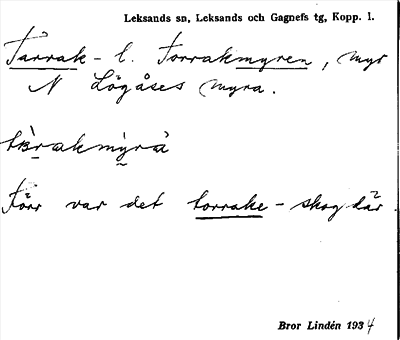 Leksands sn, Leksands och Gagnefs tg, Kopp. l.
Tårrak- l. Torrakmyren, myr
N Lögåses myra.
Förr var det torrake-skog där.
Bror Lindén 1934